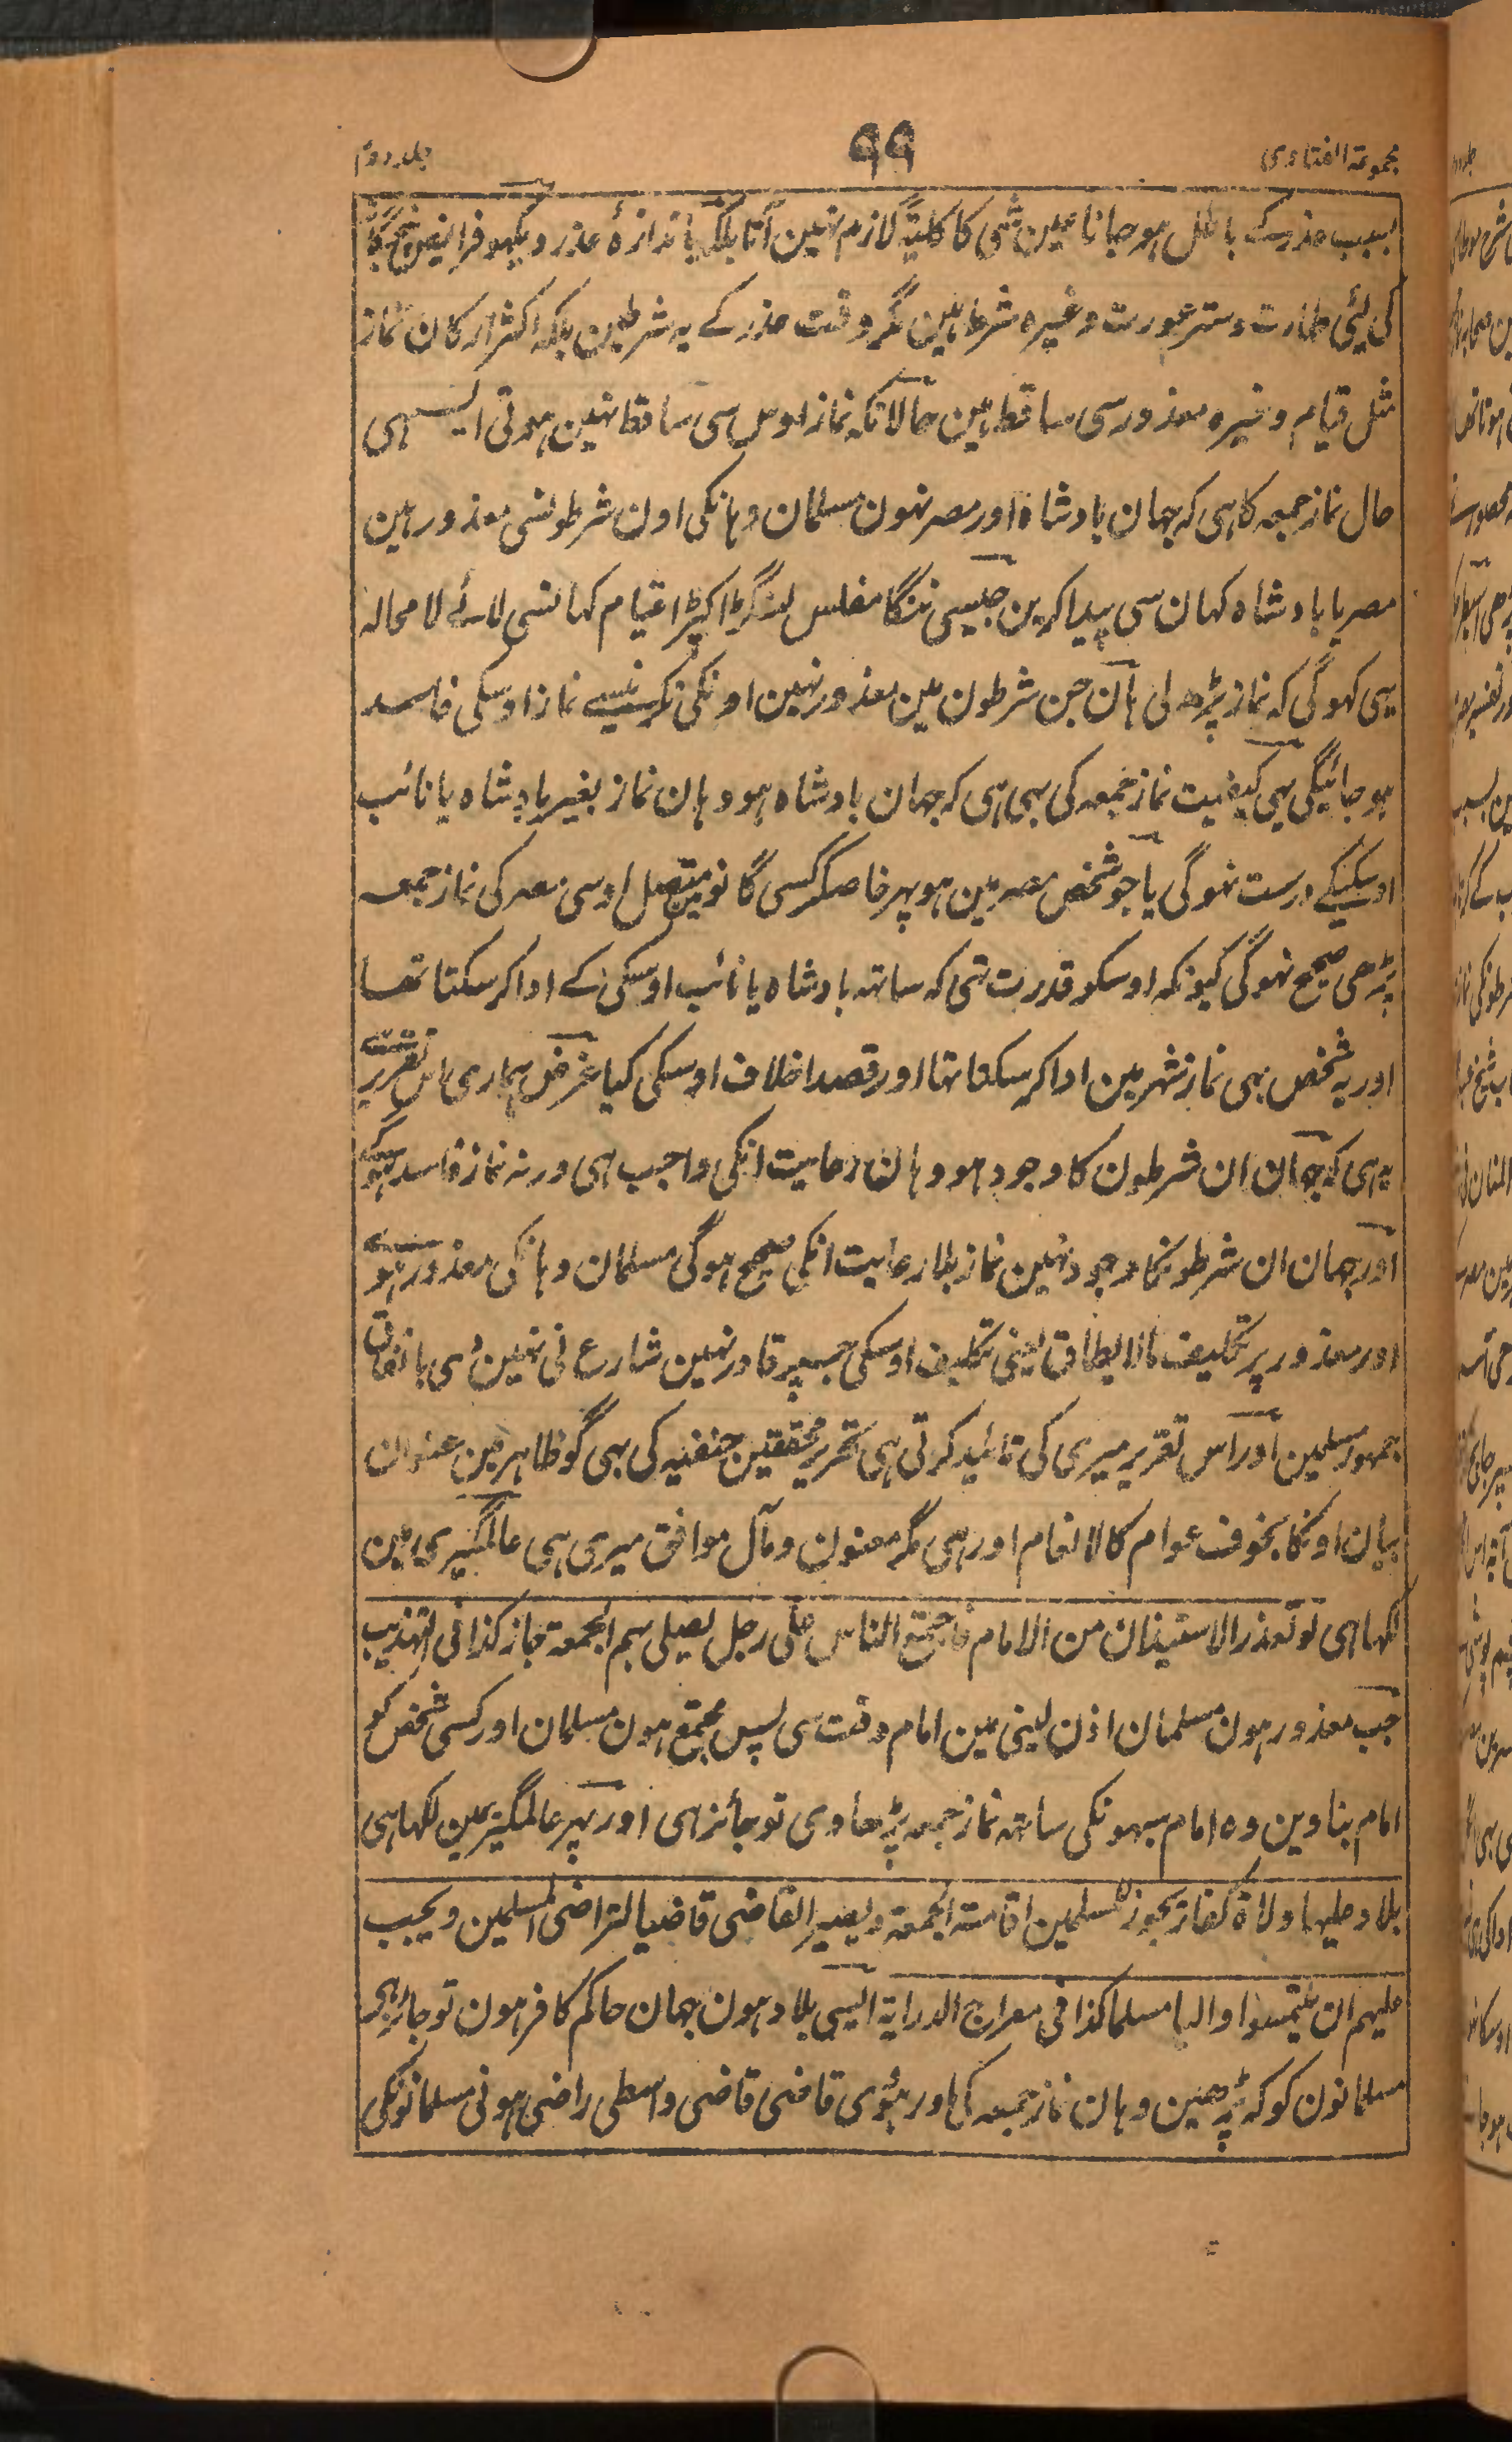 مجموعۃ الفتاوی
۹۹
جلد دوم
بسبب عذر کے باطل ہو جانا عین شی کا کلیۃً لازم نہین آتا بلکہ باندازۂ عذر دیکھو فرایض پنجگانہ
کی لیٔی طہارت و ستر عورت وغیرہ شرط ہین مگر وقت عذر کے یہ شرطین بلکہ اکثر ارکان نماز
مثل قیام وغیرہ معذور سی ساقط ہین حالانکہ نماز اوس سی ساقط نہین ہوتی ایسہی
حال نماز جمعہ کا ہی کہ جہان بادشاہ اور مصر نہون مسلمان وہانکی اون شرطونسی معذور ہین
مصر یا بادشاہ کہان سی پیدا کرین جیسی ننگا مفلس لنگڑا کپڑا قیام کہانسی لائے لا محالہ
یہی کہوگی کہ نماز پڑھ لی ہان جن شرطون مین معذور نہین اونکی نکرنیسے نماز اوسکی فاسد
ہو جائیگی یہی کیفیت نماز جمعہ کی بہی ہی کہ جہان بادشاہ ہو وہان نماز بغیر بادشاہ یا نائب
اوسکیکے درست نہوگی یا جو شخص مصر مین ہو پہر خاصکر کسی گانو متصل اوسی مصر کی نماز جمعہ
پڑھی صحیح نہوگی کیونکہ اوسکو قدرت تہی کہ ساتہ بادشاہ یا نائب اوسکی کے ادا کر سکتا تھا
اور یہ شخص بہی نماز شہر مین ادا کر سکتا تہا اور قصدا خلاف اوسکی کیا غرض ہماری اس تقریر سے
یہ ہی کہ جہان ان شرطون کا وجود ہو وہان رعایت انکی واجب ہی ورنہ نماز فاسد ہوگی
اور جہان ان شرطونکا وجود نہین نماز بلا رعایت انکی صحیح ہوگی مسلمان وہانکی معذور ہونگے
اور معذور پر تکلیف مالا یطاق یعنی تکلیف اوسکی جسپر قادر نہین شارع نی نہین دی باتفاق
جمہور مسلمین اور اس تقریر میری کی تائید کرتی ہی تحریر محققین حنفیہ کی بہی گو ظاہر مین عنوان
بیان اونکا بخوف عوام کالانعام اور ہی مگر معنون و مآل موافق میری ہی عالمگیری مین
لکہا ہی لو تعذر الاستیذان من الامام فاجتمع الناس علی رجل یصلی بہم الجمعۃ جاز کذا فی التہذیب
جب معذور ہون مسلمان اذن لینی مین امام وقت سی پس مجتمع ہون مسلمان اور کسی شخص کو
امام بناوین وہ امام سبہونکی ساتہ نماز جمعہ پڑھاوی تو جائز ہی اور پہر عالمگیری مین لکہا ہی
بلاد علیہا ولاۃ کفار یجوز للمسلمین اقامتہ الجمعۃ ویصیر القاضی قاضیا بتراضی المسلمین ویجب
علیہم ان یلتمسوا والیا مسلما کذا فی معراج الدرایۃ ایسی بلاد ہون جہان حاکم کافر ہون تو جائز ہی
مسلمانون کو کہ پڑھین وہان نماز جمعہ کی اور ہووی قاضی قاضی واسطی راضی ہونی مسلمانونکی